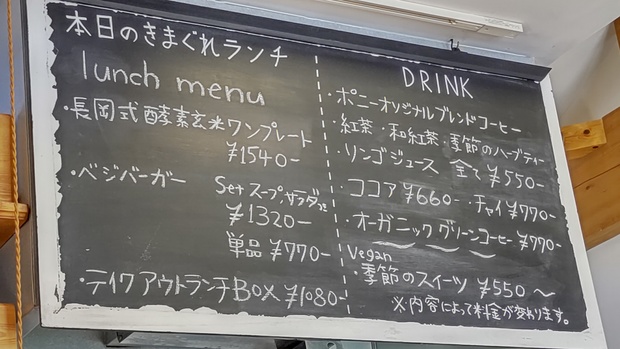 本日のきまぐれランチ
lunch menu
・長岡式酵素玄米ワンプレート
¥1540-
・ベジバーガー
Set スープ,サラダつき
¥1320-
単品 ¥770-
・テイクアウトランチBOX ¥1080-
DRINK
・ポニーオリジナルブレンドコーヒー
・紅茶・和紅茶・季節のハーブティー
・リンゴジュース 全て ¥550-
・ココア ¥660-・チャイ ¥770-
・オーガニック グリーンコーヒー ¥770-
Vegan
・季節のスイーツ ¥550 〜
※内容によって料金が変わります。